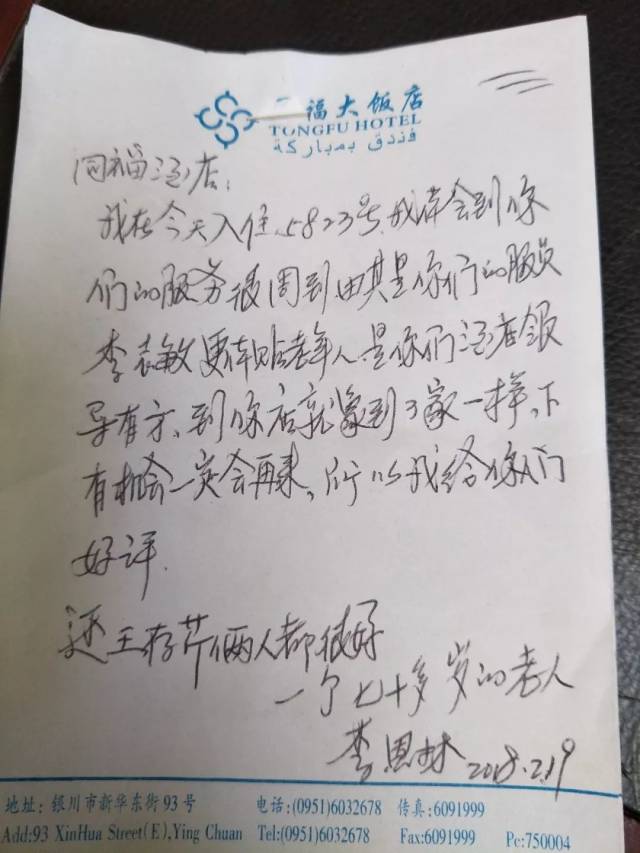 福大饭店
TONGFU HOTEL
فندق بمباركة
同福酒店:
我在今天入住5823号.我体会到你
们的服务很周到由其是你们的服员
李表敏更体贴老年人是你们酒店领
导有方、到你店就像到了家一样,下
有机会一定会再来,所以我给你们
好评.
还王存芹俩人都很好
一个七十多岁的老人
李恩林 2018.2.19
地址: 银川市新华东街93号 电话:(0951)6032678 传真:6091999
Add:93 XinHua Street(E),Ying Chuan Tel:(0951)6032678 Fax:6091999 Pc:750004